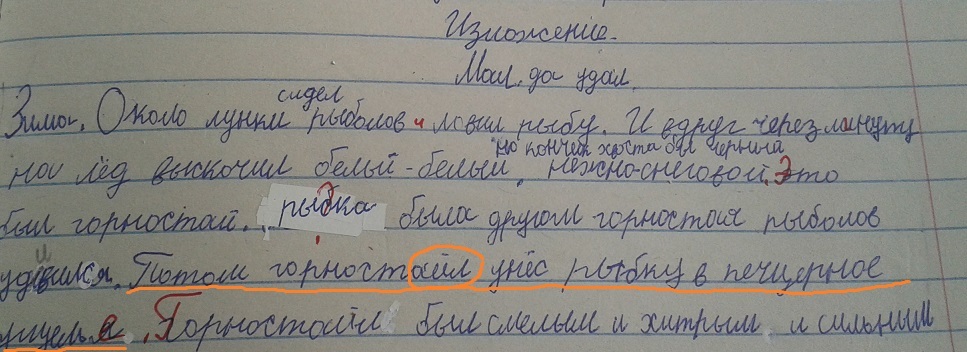 Изложение.
Мал, да удал.
Зима. Около лунки сидел рыболов и ловил рыбу. И вдруг через минуту
на лёд выскочил белый-белый, на кончик хвоста был чернина нежно-снеговой. Это
был горностай. рыбка была другом горностая рыболов
удивился. Потом горностайл унёс рыбку в пещерное
ущелье. Горностайл был смелым и хитрым и сильным